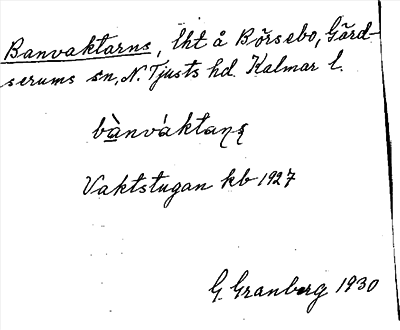 Banvaktarns, lht å Börsebo, Gärd-
serums sn, N. Tjusts hd. Kalmar l.
bànváktaṇṣ
Vaktstugan kb 1927
G. Granberg 1930